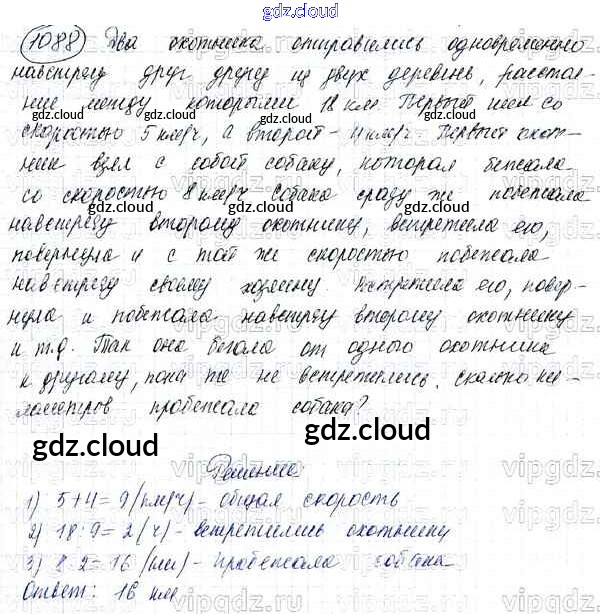 gdz.cloud
1088 Два охотника отправились одновременно
навстречу друг другу из двух деревень, расстоя-
ние между которыми 18 км. Первый шел со
скоростью 5 км/ч, а второй - 4 км/ч. Первый охот-
ник взял с собой собаку, которая бежала
со скоростью 8 км/ч. Собака сразу же побежала
навстречу второму охотнику, встретила его,
повернула и с той же скоростью побежала
навстречу своему хозяину. Встретила его, повер-
нула и побежала навстречу второму охотнику
и т.д. Так она бегала от одного охотника
к другому, пока те не встретились. Сколько ки-
лометров пробежала собака?
gdz.cloud
gdz.cloud
Решение
1) 5+4=9 (км/ч) - общая скорость
2) 18:9=2 (ч) - встретились охотники
3) 8·2=16 (км) - пробежала собака
Ответ: 16 км.
gdz.cloud